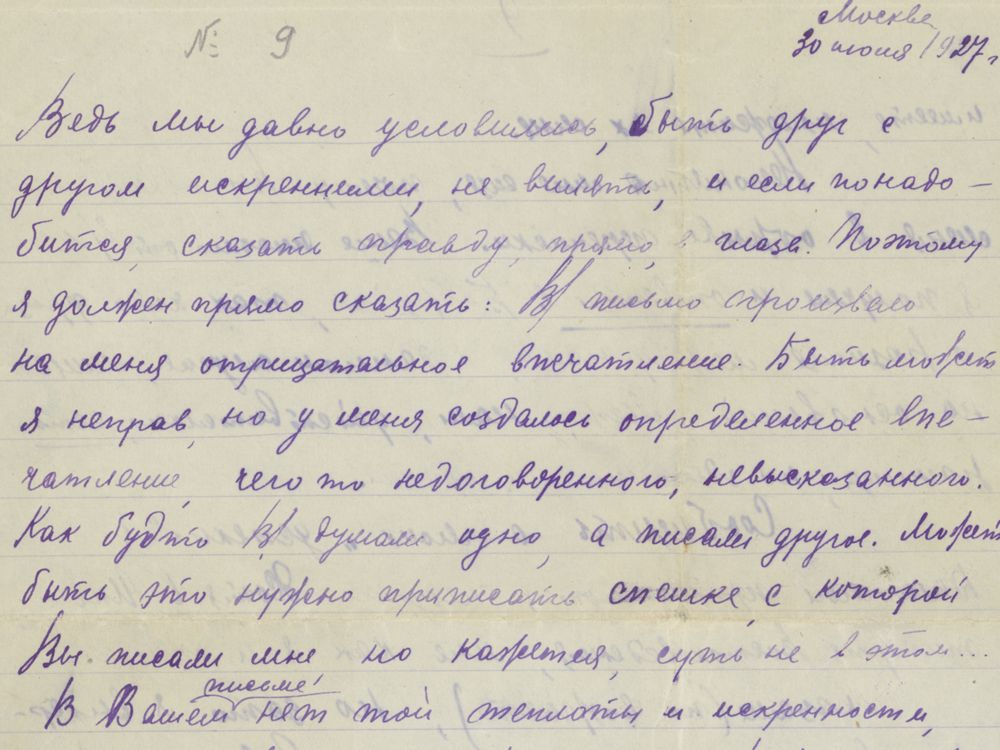 № 9
Москва
30 июня 1927 г
Ведь мы давно условились, быть друг с
другом искренними, не вилять, и если понадо-
бится, сказать правду, прямо, в глаза. Поэтому
я должен прямо сказать: В/ письмо произвело
на меня отрицательное впечатление. Быть может
я неправ, но у меня создалось определенное впе-
чатление, чего то недоговоренного, невысказанного.
Как будто В/ думали одно, а писали другое. Может
быть это нужно приписать спешке, с которой
Вы писали мне но кажется, суть не в этом...
письме
В Вашем нет той теплоты и искренности,